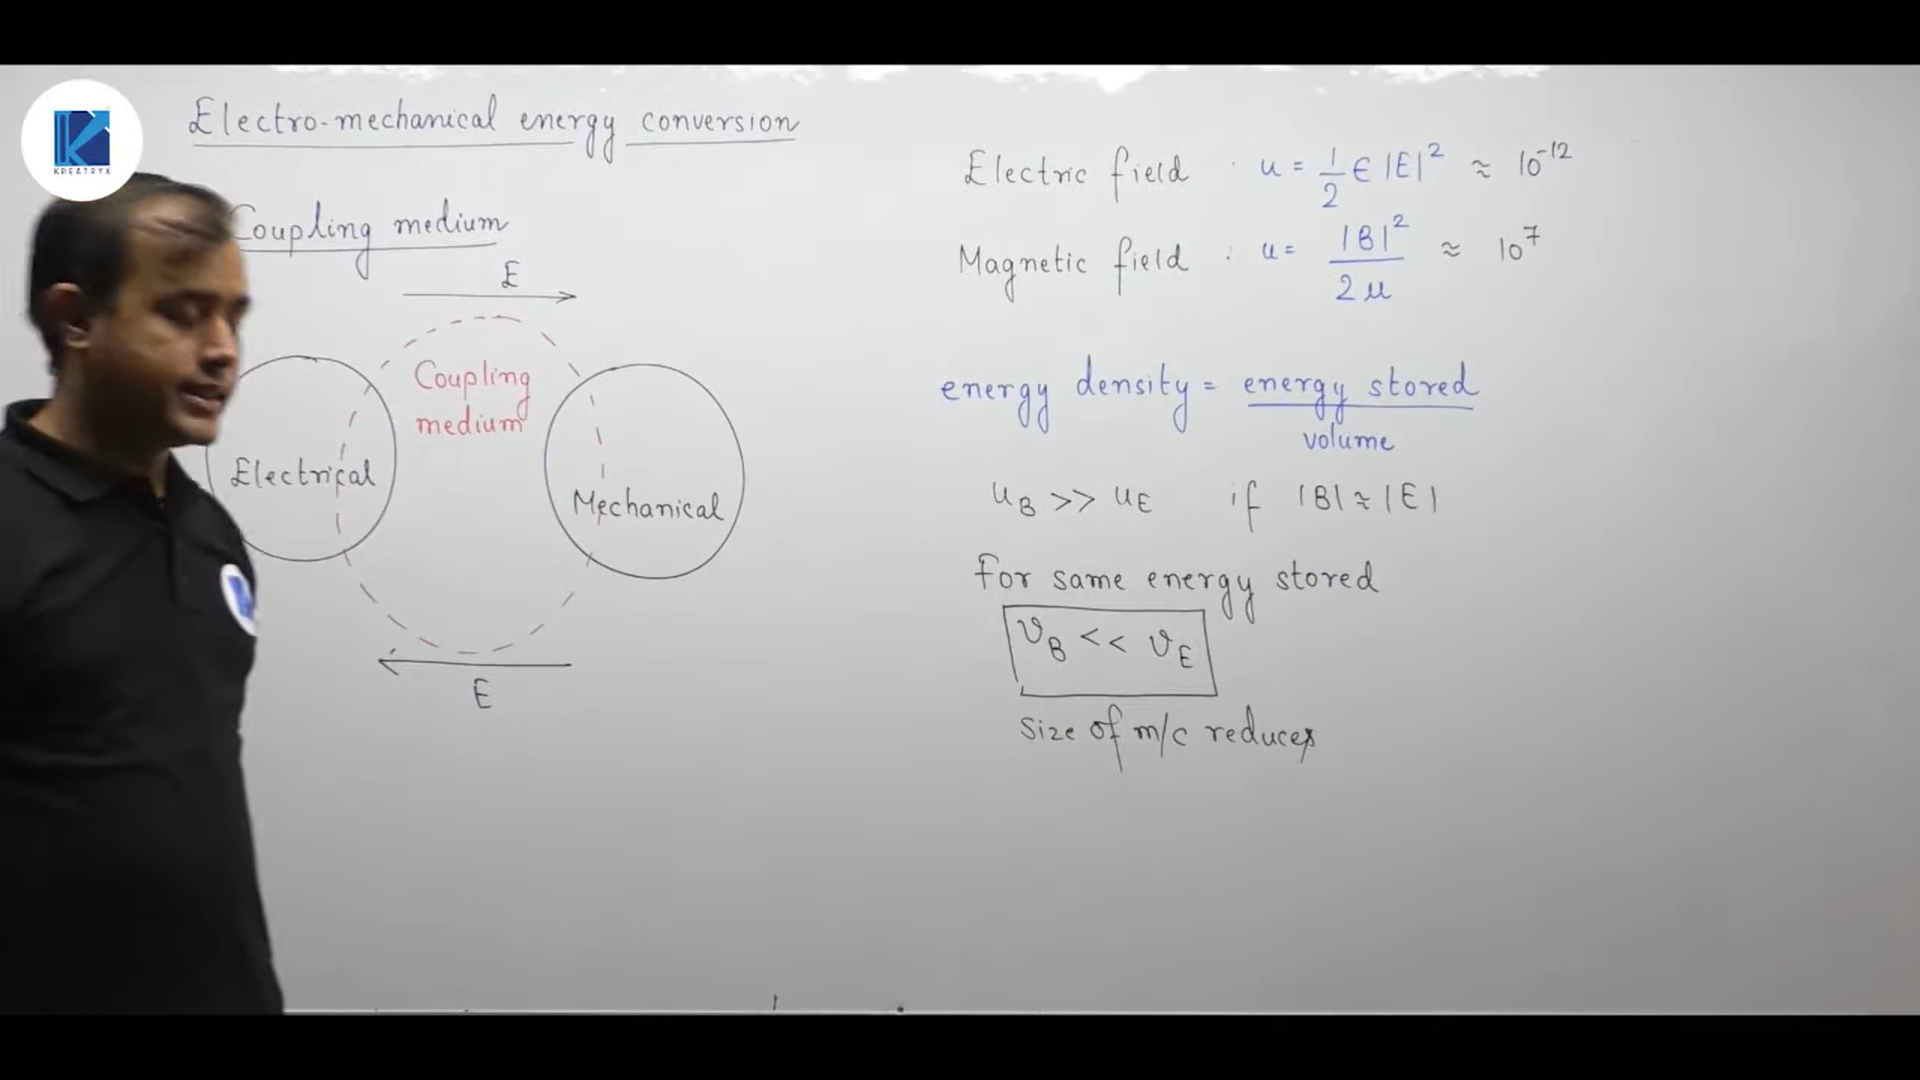 KREATRYX
Electro-mechanical energy conversion
Coupling medium
E
Coupling
medium
Electrical
Mechanical
E
Electric field : u = 1/2 ∈ |E|² ≈ 10⁻¹²
Magnetic field : u = |B|² / 2μ ≈ 10⁷
energy density = energy stored / volume
u_B >> u_E if |B| ≈ |E|
For same energy stored
v_B << v_E
Size of m/c reduces